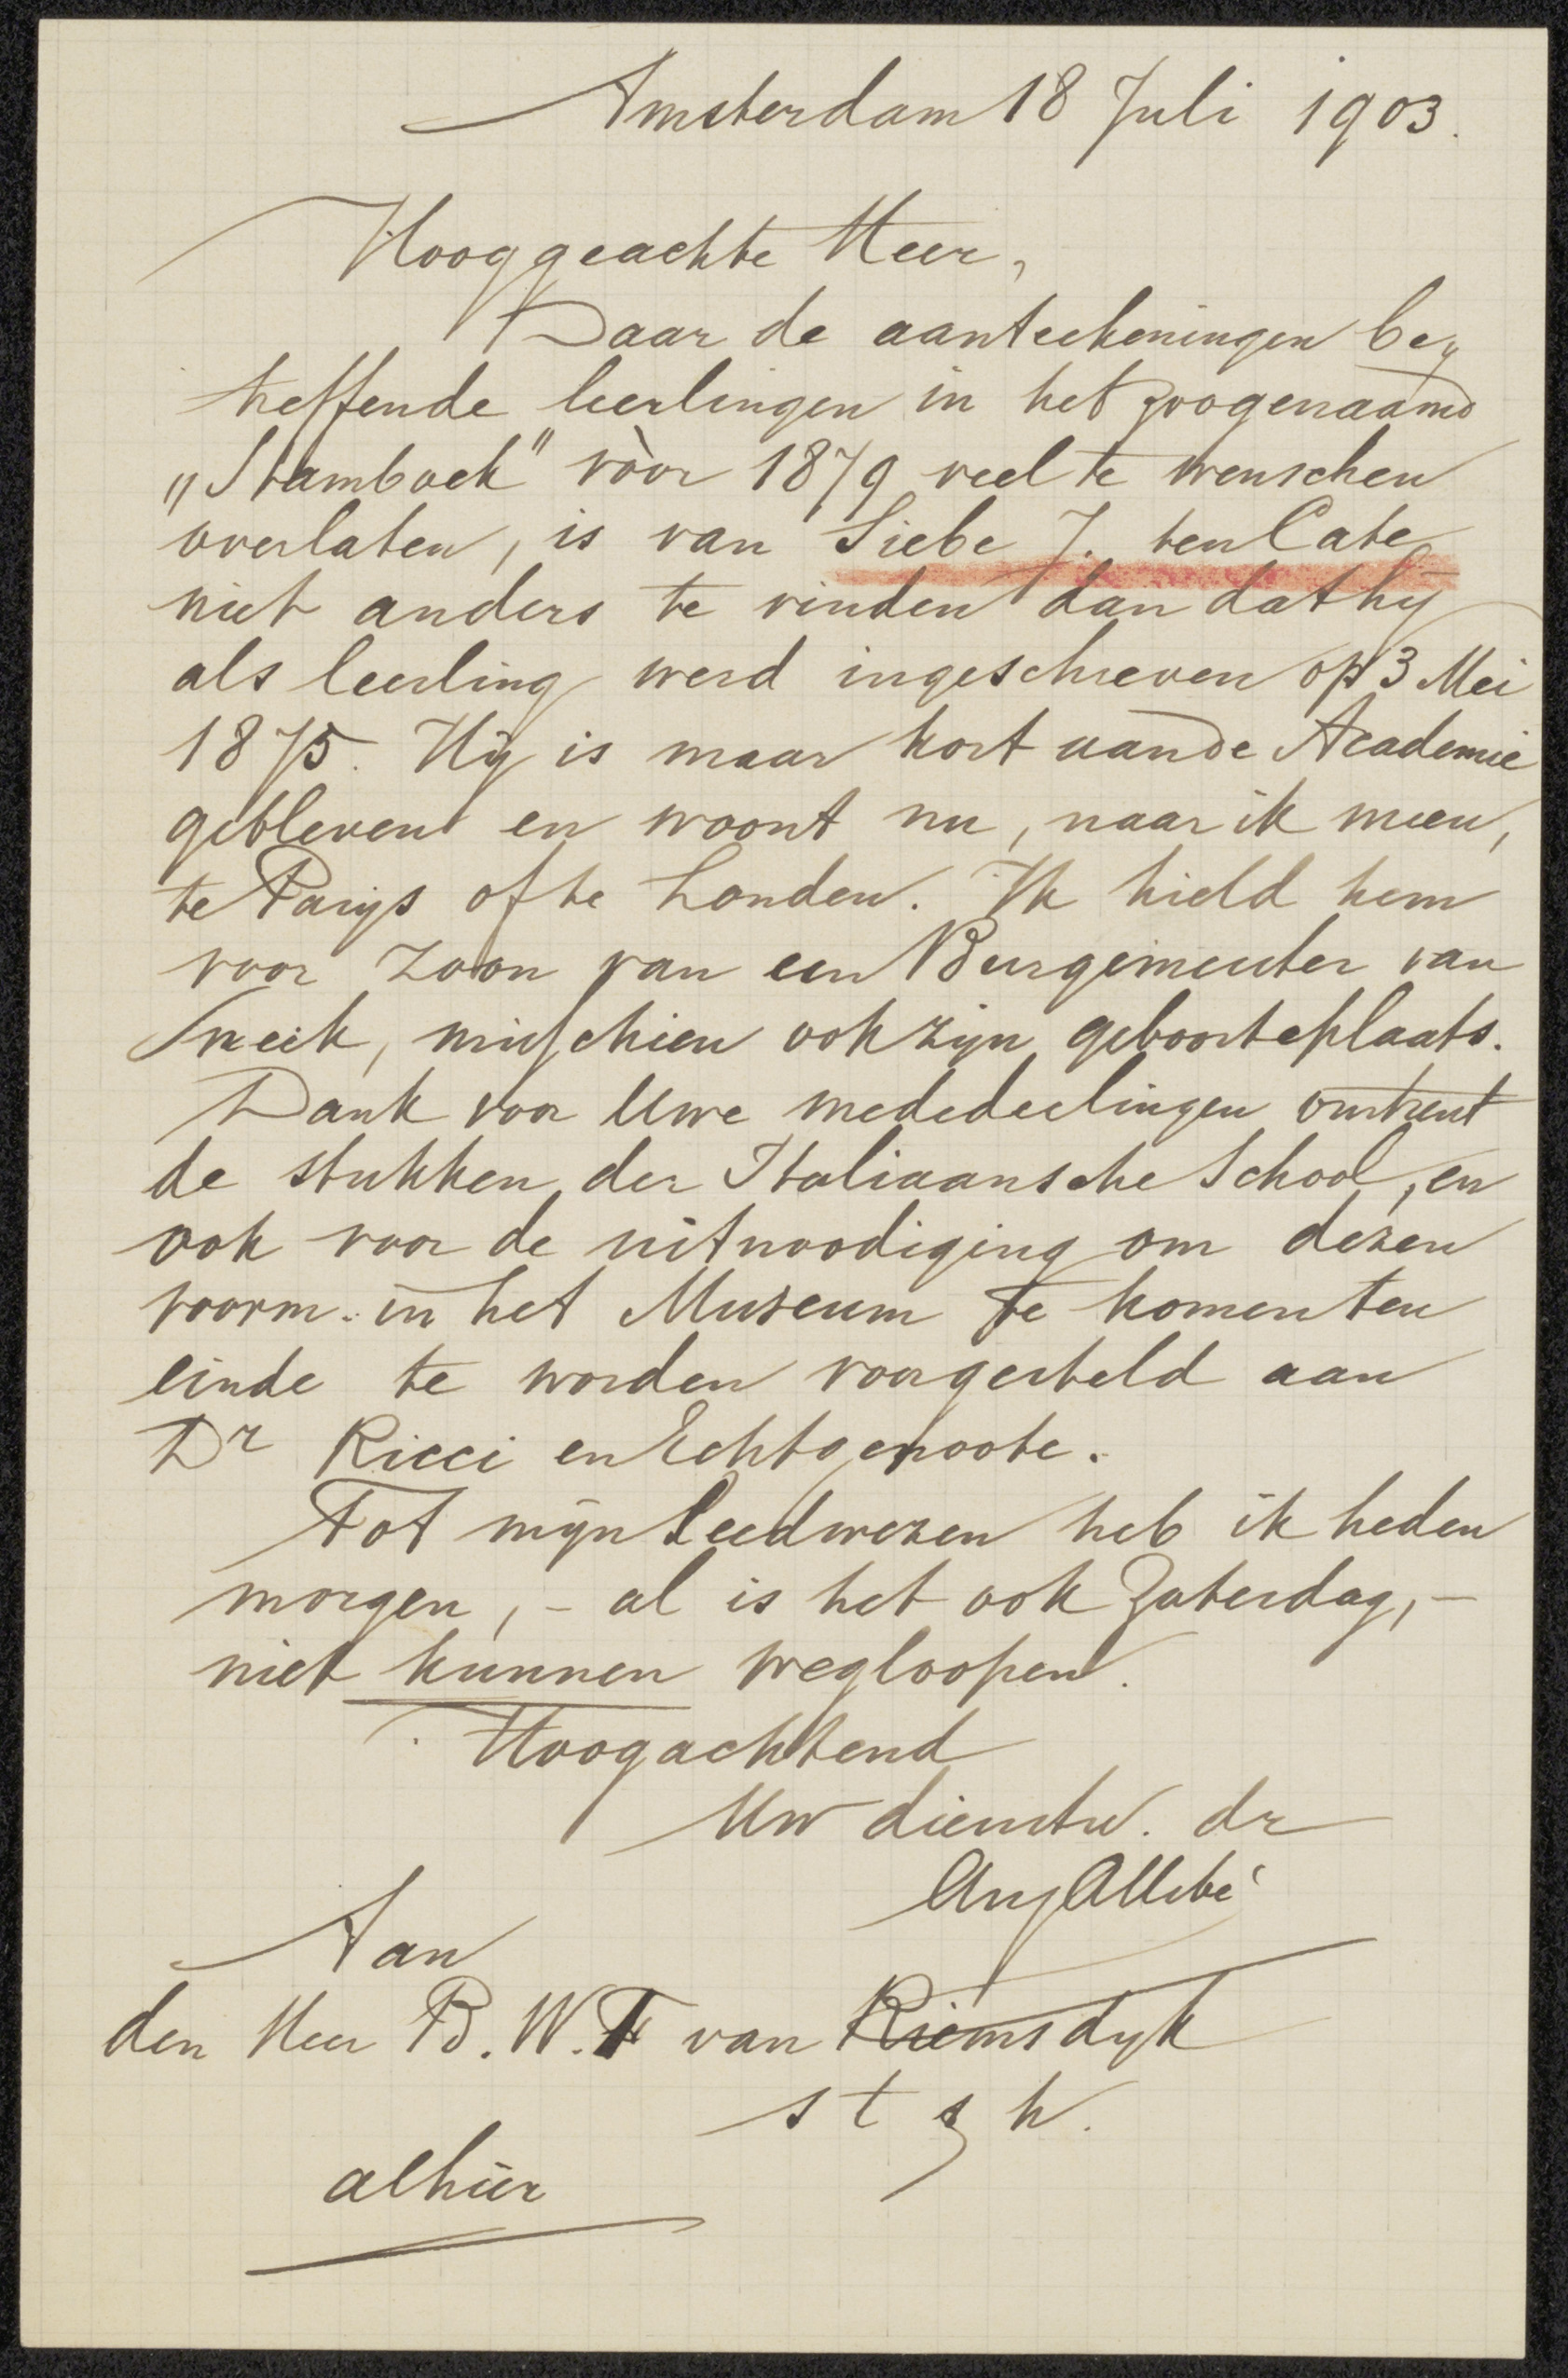 Amsterdam 18 Juli 1903.
Hooggeachte Heer,
Daar de aanteekeningen be=
treffende leerlingen in het zoogenaamd
„Stamboek" vòòr 1879 veel te wenschen
overlaten, is van Siebe J. ten Cate
niet anders te vinden dan dat hij
als leerling werd ingeschreven op 3 Mei
1875. Hij is maar kort aan de Academie
gebleven en woont nu, naar ik meen,
te Parijs of te Londen. Ik hield hem
voor zoon van een Burgemeester van
Sneek, misschien ook zijn geboorteplaats.
Dank voor Uwe mededeelingen omtrent
de stukken der Italiaansche School, en
ook voor de uitnoodiging om dezen
voorm. in het Museum te komen ten
einde te worden voorgesteld aan
Dr Ricci en Echtgenoote.
Tot mijn Leedwezen heb ik heden
morgen, - al is het ook Zaterdag, -
niet kunnen wegloopen.
Hoogachtend
Uw dienstw. dr
Aug Allebé
Aan
den Heer B. W. F van Riemsdijk
s t z h.
alhier